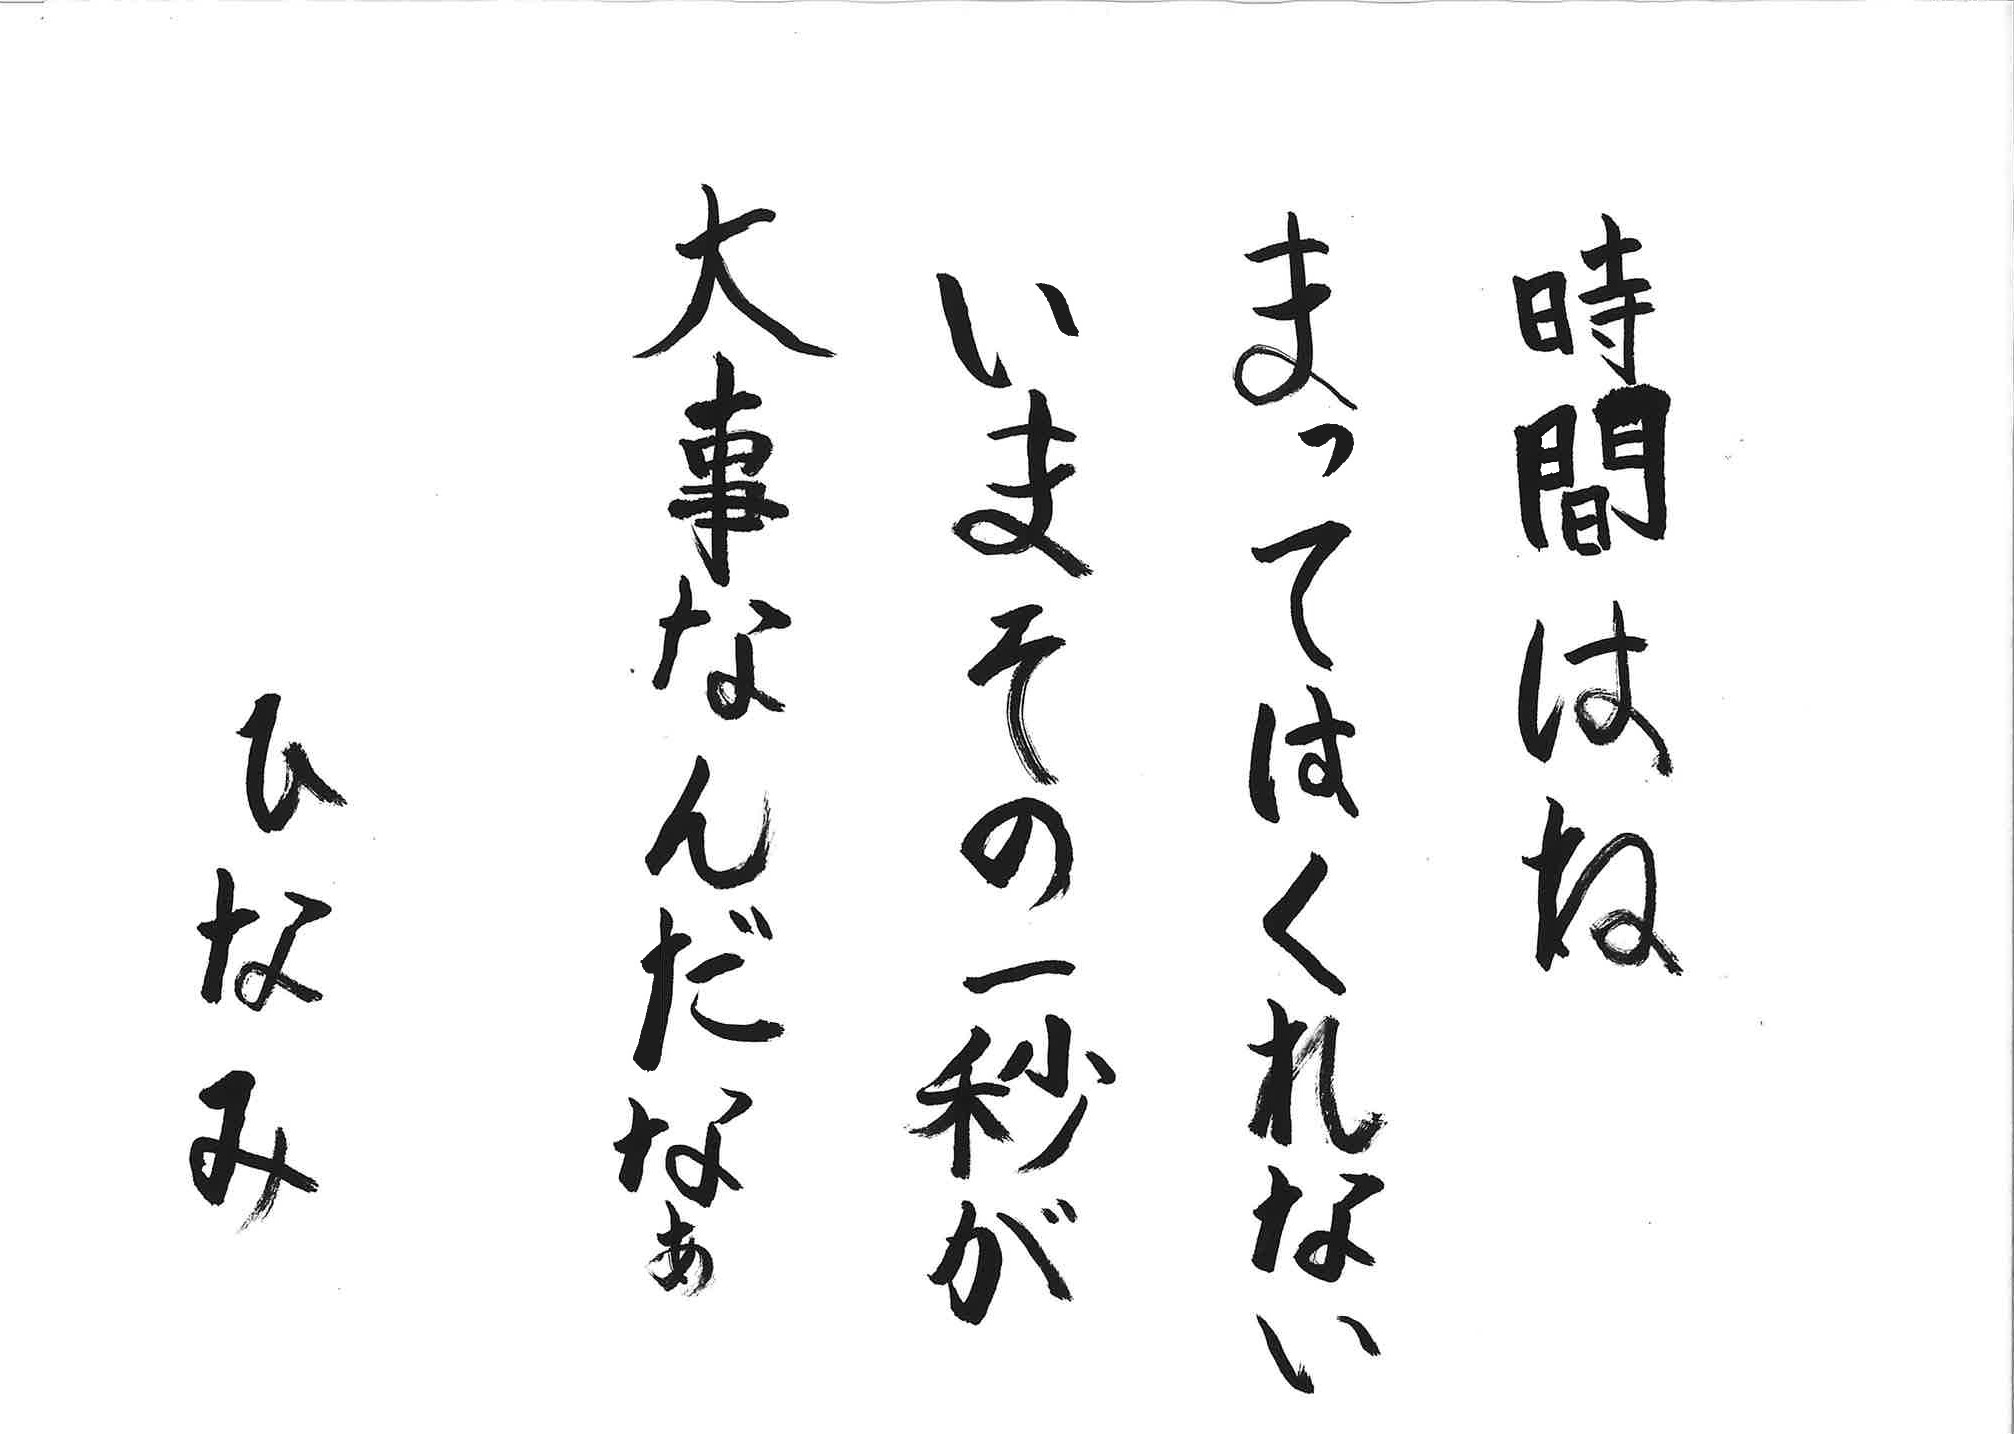 時間はね
まってはくれない
いまその一秒が
大事なんだなぁ
ひなみ